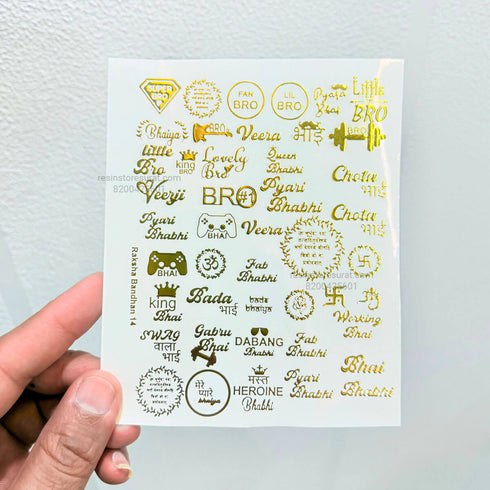 SUPER
BRO
FAN
BRO
LIL
BRO
Pyara
Bhai
Little
BRO
Bhaiya
Veera
भाई
BRO
little
Bro
king
BRO
Lovely
Bro
Queen
Bhabhi
Chota
भाई
resinstoresurat.com
8200425501
Veerji
BRO
#1
Pyari
Bhabhi
Chota
भाई
Pyari
Bhabhi
BHAI
Veera
BHAI
ॐ
Fab
Bhabhi
resinstoresurat.com
8200425501
king
BHAI
Bada
भाई
bade
bhaiya
My
Working
Bhai
SWAG
वाला
भाई
Gabru
Bhai
DABANG
Bhabhi
Fab
Bhabhi
Bhai
Bhabhi
मेरे
प्यारे
bhaiya
मस्त
HEROINE
Bhabhi
Pyari
Bhabhi
Raksha Bandhan 14